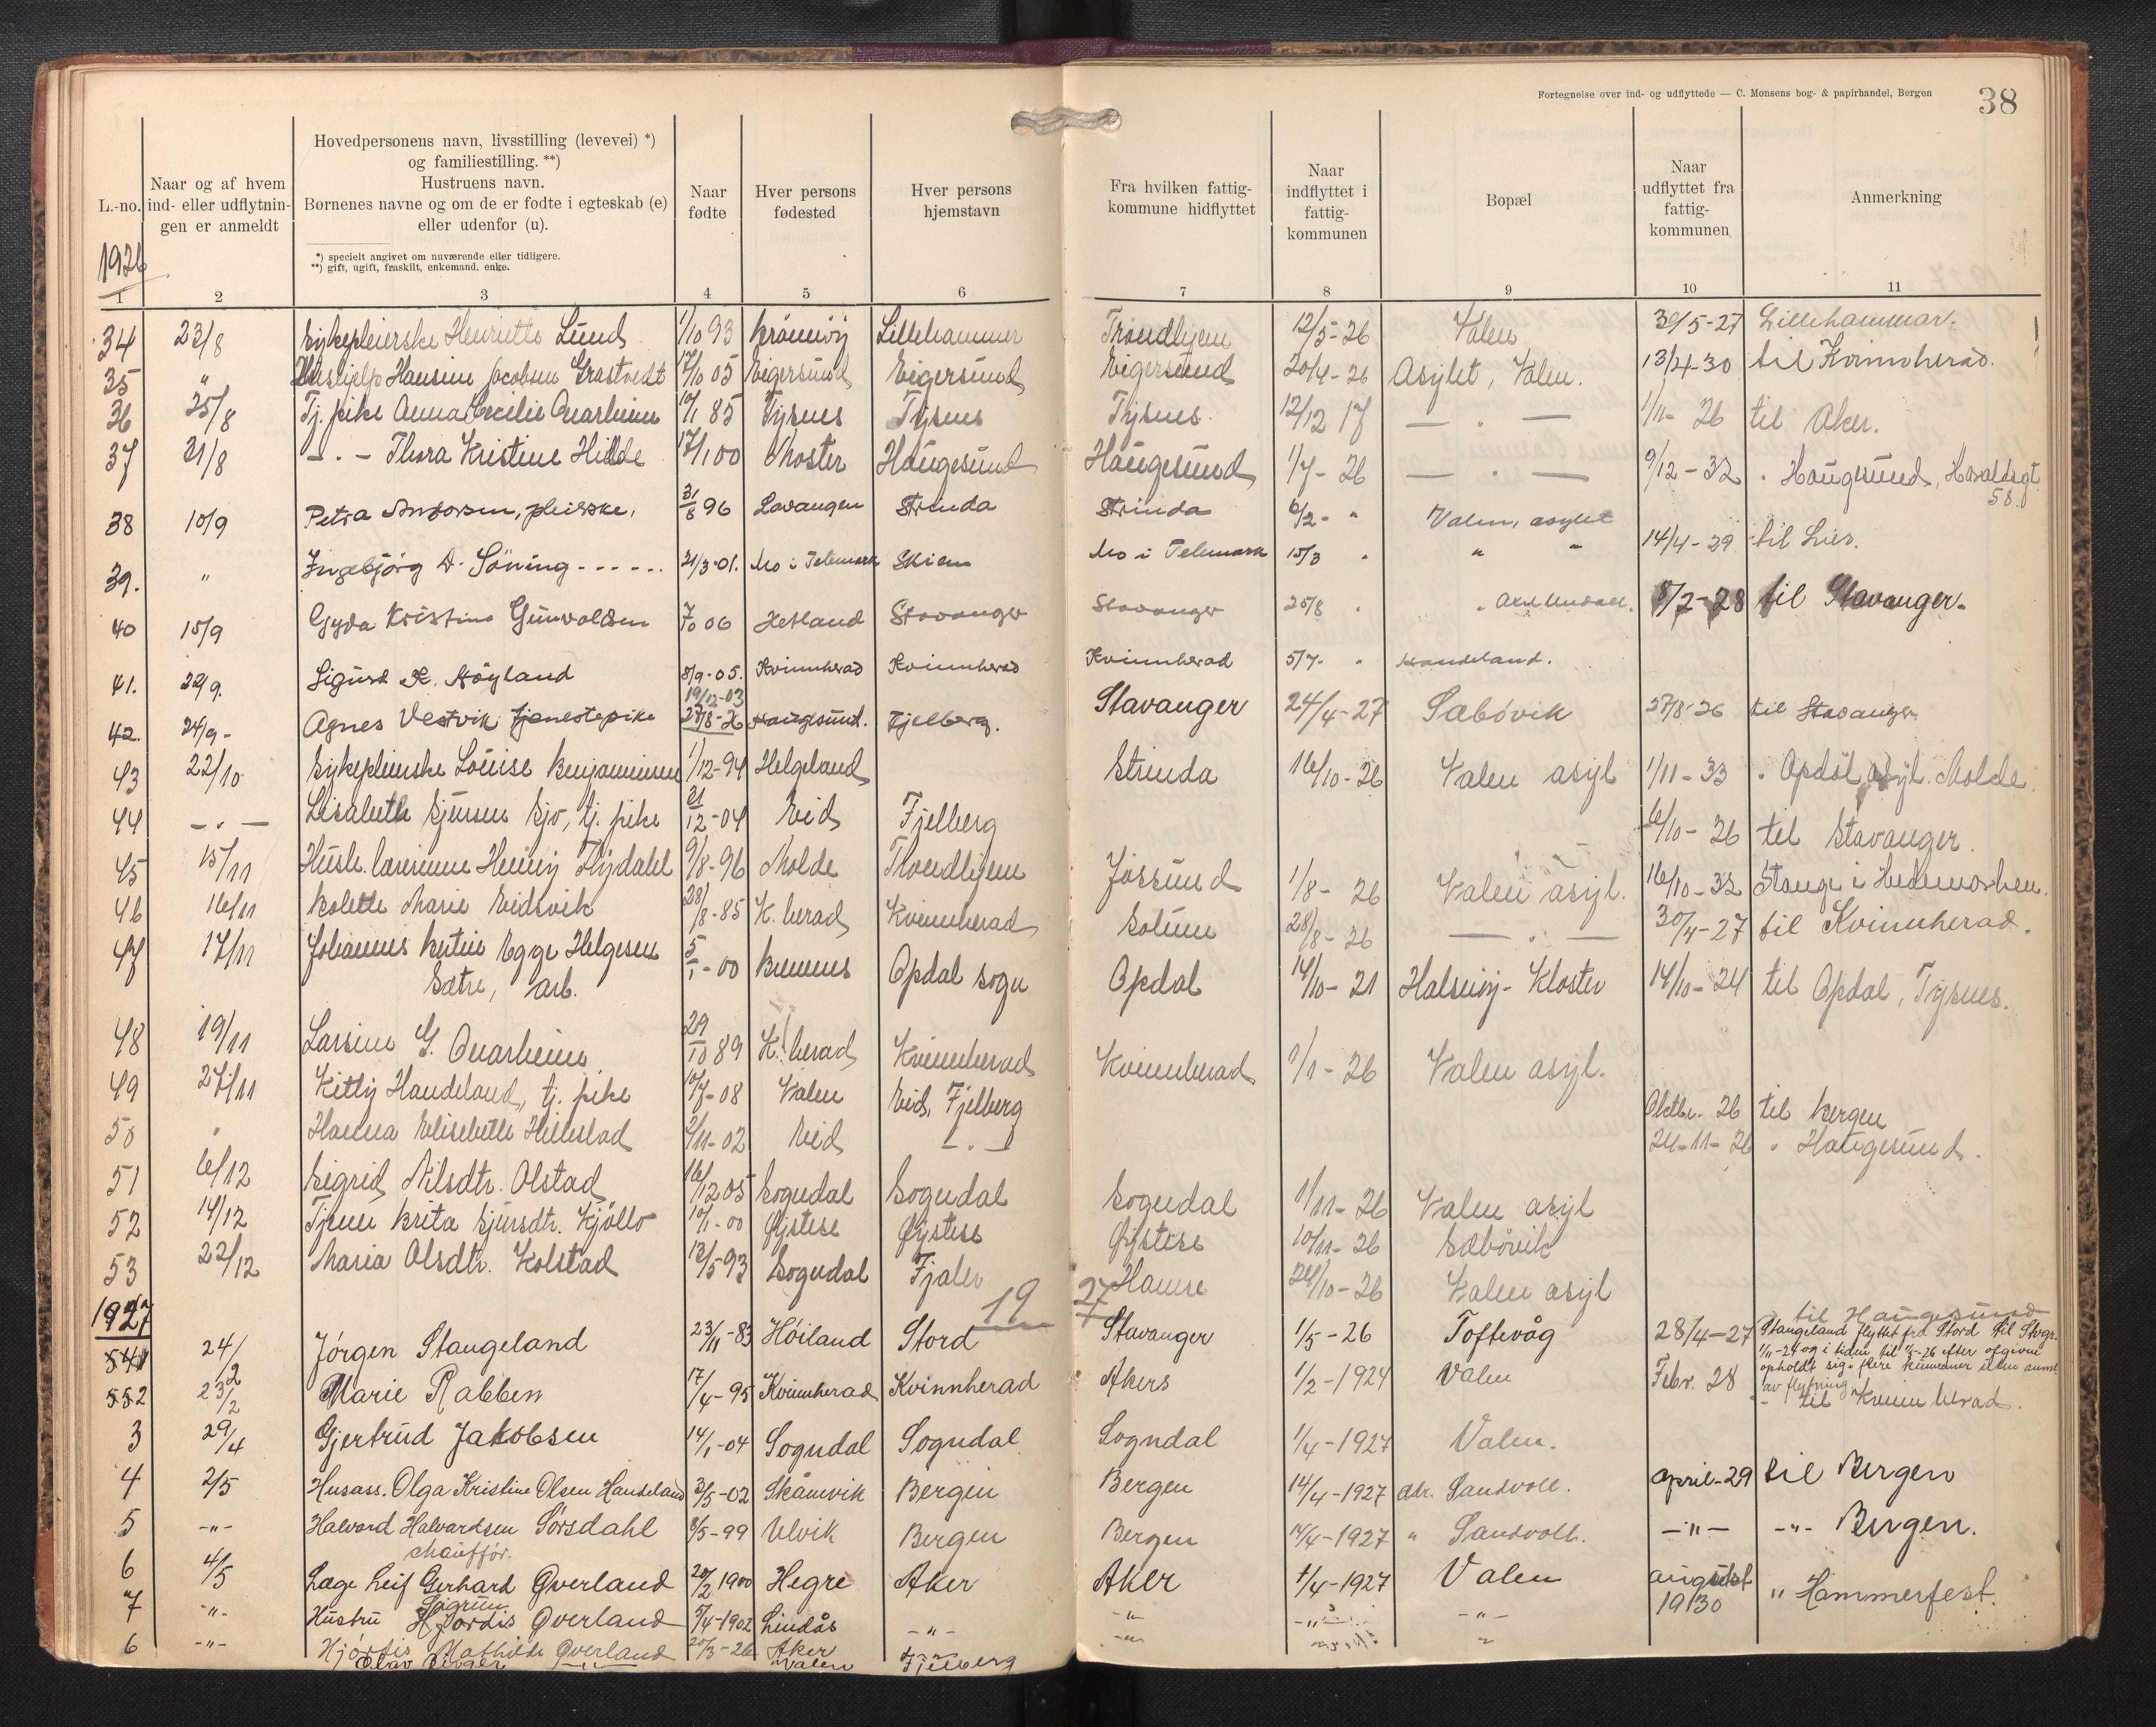 Fortegnelse over ind- og udflyttede — C. Monsens bog- & papirhandel, Bergen
38
L.-no.
Naar og af hvem ind- eller udflytningen er anmeldt
Hovedpersonens navn, livsstilling (levevei) *)
og familiestilling. **)
Hustruens navn.
Børnenes navne og om de er fødte i egteskab (e)
eller udenfor (u).
*) specielt angivet om nuværende eller tidligere.
**) gift, ugift, fraskilt, enkemand, enke.
Naar fødte
Hver persons fødested
Hver persons hjemstavn
Fra hvilken fattigkommune hidflyttet
Naar indflyttet i fattigkommunen
Bopæl
Naar udflyttet fra fattigkommunen
Anmerkning
1926
1 2 3 4 5 6 7 8 9 10 11
34 23/8 Sykepleierske Henriette Lund 1/10 93 Lillehammer Trondhjem 12/5-26 Valen 30/5-27 Lillehammar.
35 " Hushjelp Hansine Jacobsen Grastvedt 17/10 05 Eigersund Eigersund Eigersund 20/4-26 Asylet, Valen. 13/4-30 til Kvinnherad.
36 25/8 Tj. pike Anna Cecilie Qvarheim 10/1 85 Tysnes Tysnes Tysnes. 12/12 17 — " — 1/11-26 til Aker.
37 31/8 — " — Thora Kristine Hille 17/1 00 Moster Haugesund Haugesund 1/7-26 — " — 9/12-32 " Haugesund, Haraldsgt. 58.
38 10/9 Petra Andorsen, pleierske, 31/8 96 Lavangen Strinda Strinda 6/2- " Valen, asylet
39. " Ingebjörg A. Söning - - - - - 21/3-01. Mo i Telemark Skien Mo i Telemark 15/3 " " " 14/4-29 til Lier.
40 15/9 Gyda Kristine Gunvaldsen 7/10 06 Hetland Stavanger Stavanger 25/8 " 8/2-28 til Stavanger.
41. 22/9. Sigurd K. Höyland 8/9-05. Kvinnherad Kvinnherad Kvinnherad 5/7- " Handeland.
19/12-03
42. 24/9- Agnes Vestvik tjenestepike 27/8-26 Haugesund. Fjelberg. Stavanger 24/4-27 Sæbövik 27/8-26 til Stavanger
43 22/10 Sykepleierske Louise Benjaminsen 1/12-94 Helgeland Strinda 16/10-26 Valen asyl 1/11-33 " Opdöl asyl. Molde.
44 — " — Lisabeth Sjursen Sjo, tj. pike 21/12-04 Eid Fjelberg 6/10-26 til Stavanger.
45 15/11 Henny Flydahl 9/8-96 Molde Trondhjem Jössund 1/8-26 Valen asyl. 16/10-32 Stange i Hedemarken.
46 16/11 Kolette Marie Eidsvik 28/8-85 K. herad Kvinnherad Solum 28/8-26 — " — 30/4-27 til Kvinnherad.
47 17/11 Johannes Egge Helgesen 5/1-00 Opdal sogn Opdal 14/10-21 Halsnöy-Kloster 14/10-24 til Opdal, Tysnes.
Sætre, arb.
48 19/11 Larsine G. Qvarheim 29/10 89 K. herad Kvinnherad Kvinnherad 1/1-26 Valen asyl.
49 27/11 Kitty Handeland, tj. pike 10/7-08 Valen Eid, Fjelberg Oktbr. 26 til Bergen
50 " Hanna Elisebeth 2/11-02 Eid — " — 24-11-26 " Haugesund.
51 6/12 Sigrid Nilsdtr. Olstad 16/12 05 Sogndal Sogndal Sogndal 1/11-26 Valen asyl
52 14/12 Brita Sjursdtr. Kjöllo 10/1-00 Øystese Øystese Øystese 10/11-26 Sæbövik
53 22/12 Maria Olsdtr. Kolstad 12/5-93 Sogndal Fjaler Hamre 24/10-26 Valen asyl
1927
19 27
til Haugesund
54 1 24/2 Jörgen Stangeland 23/11-83 Höiland Stord Stavanger 1/5-26 Toftevåg 28/4-27 Stangeland flyttet fra Stord til Stvgr.
1/11-24 og i tiden til 1/5-26 efter opgivne
opholdt sig i flere kommuner uten anml.
av flytning.
55 2 23/2 Marie Rabben 17/4-95 Kvinnherad Kvinnherad Akers 1/2-1924 Valen Febr. 28 - til Kvinnherad.
3 29/4 Gjertrud Jakobsen 14/1-04 Sogndal Sogndal Sogndal 1/4-1927 Valen.
4 2/5 Husass. Olga Kristine Olsen Handeland 3/5-02 Skånevik Bergen Bergen 14/4-1927 adr. Sandvoll. april-29 til Bergen
5 -"- Halvard Halvardsen Sörsdahl 8/5-99 Ulvik Bergen Bergen 14/4-1927 " Sandvoll. -"- -"- Bergen.
chauffør.
6 4/5 Læge Leif Gerhard Qverland 20/2 1900 Hegre Aker Aker 1/4-1927 Valen august 1930 " Hammerfest.
7 -"- Hustru Sigrun Hjördis Qverland 5/4-1902 Lindås -"- -"- -"- -"-
6 -"- Hjördis Mathilde Qverland 20/3-26 Aker
Olav Birger -"- Valen Fjelberg